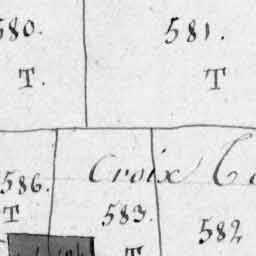 580. 581.
T. T
Croix
586. 583. 582
T T